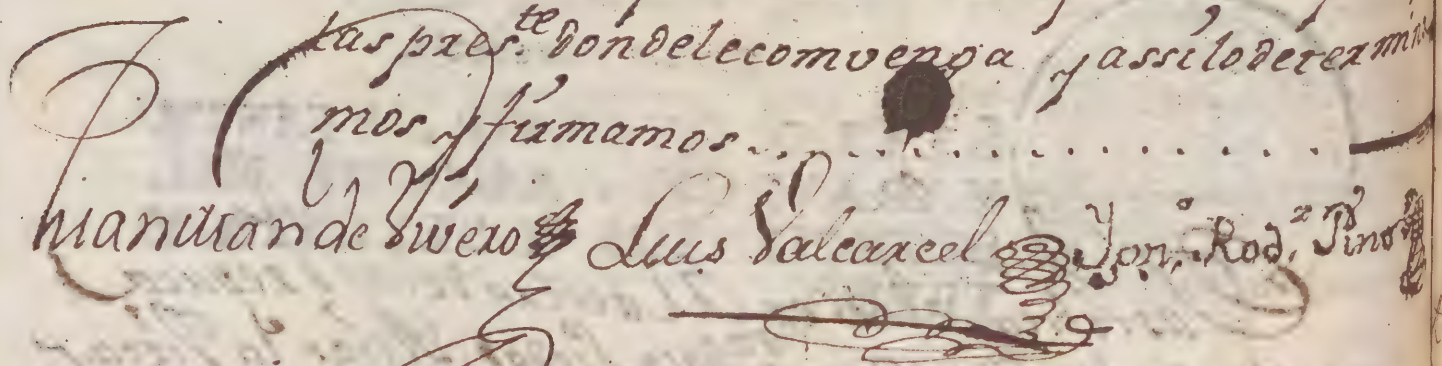 tas pres.te donde le comvenga y assi lo determina
mos y firmamos
Juan Uran de Vivero Luis Valcarcel Jon.o Rod.z Pino